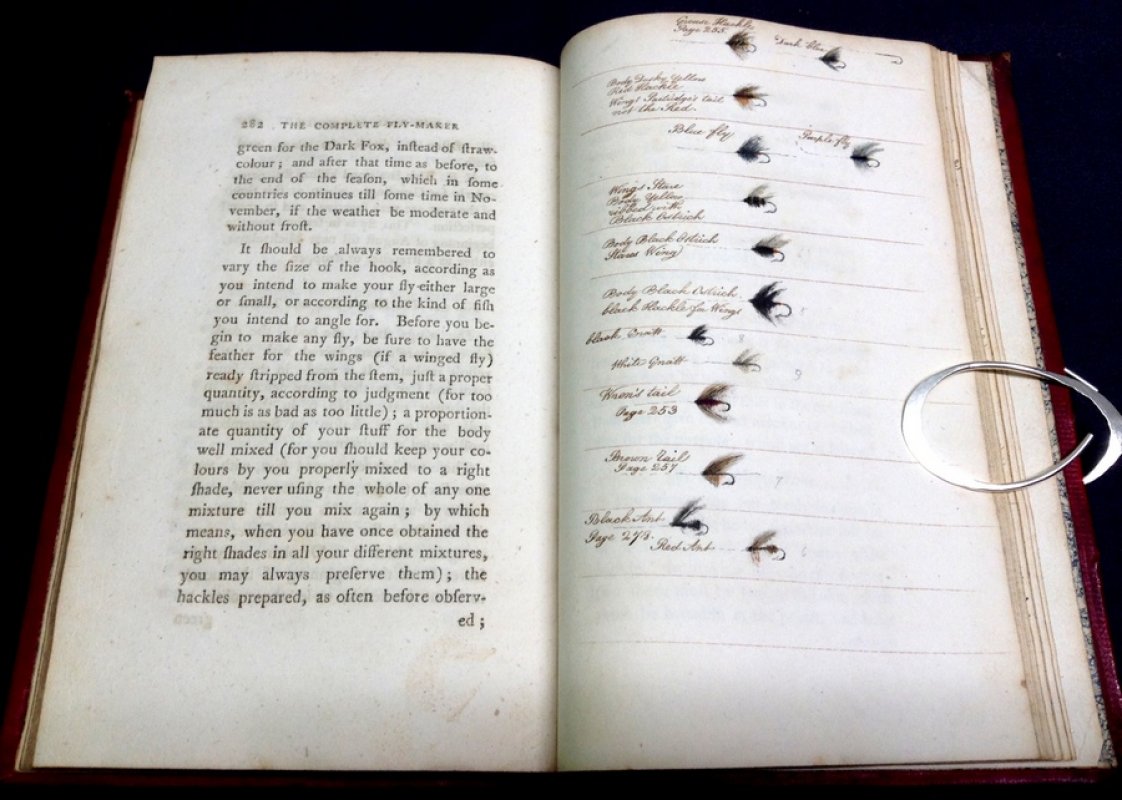 282 THE COMPLETE FLY-MAKER
green for the Dark Fox, inſtead of ſtraw-
colour; and after that time as before, to
the end of the ſeaſon, which in ſome
countries continues till ſome time in No-
vember, if the weather be moderate and
without froſt.
It ſhould be always remembered to
vary the ſize of the hook, according as
you intend to make your fly either large
or ſmall, or according to the kind of fiſh
you intend to angle for. Before you be-
gin to make any fly, be ſure to have the
feather for the wings (if a winged fly)
ready ſtripped from the ſtem, juſt a proper
quantity, according to judgment (for too
much is as bad as too little); a proportion-
ate quantity of your ſtuff for the body
well mixed (for you ſhould keep your co-
lours by you properly mixed to a right
ſhade, never uſing the whole of any one
mixture till you mix again; by which
means, when you have once obtained the
right ſhades in all your different mixtures,
you may always preſerve them); the
hackles prepared, as often before obſerv-
ed;
Hackle
Page 255.
Dark Blue
Body Dusky Yellow
Red Hackle
Wings Partridge's tail
not the Red.
Blue fly
Purple fly
Wings Stare
Body Yellow
ribbed with
Black Ostrich
Body Black Ostrich
Stares Wing
Body Black Ostrich
black Hackle for Wings
black Gnatt 8
White Gnatt 9
Wren's tail
Page 253
Brown Tails
Page 257
7
Black Ant
Page 273.
Red Ant 6